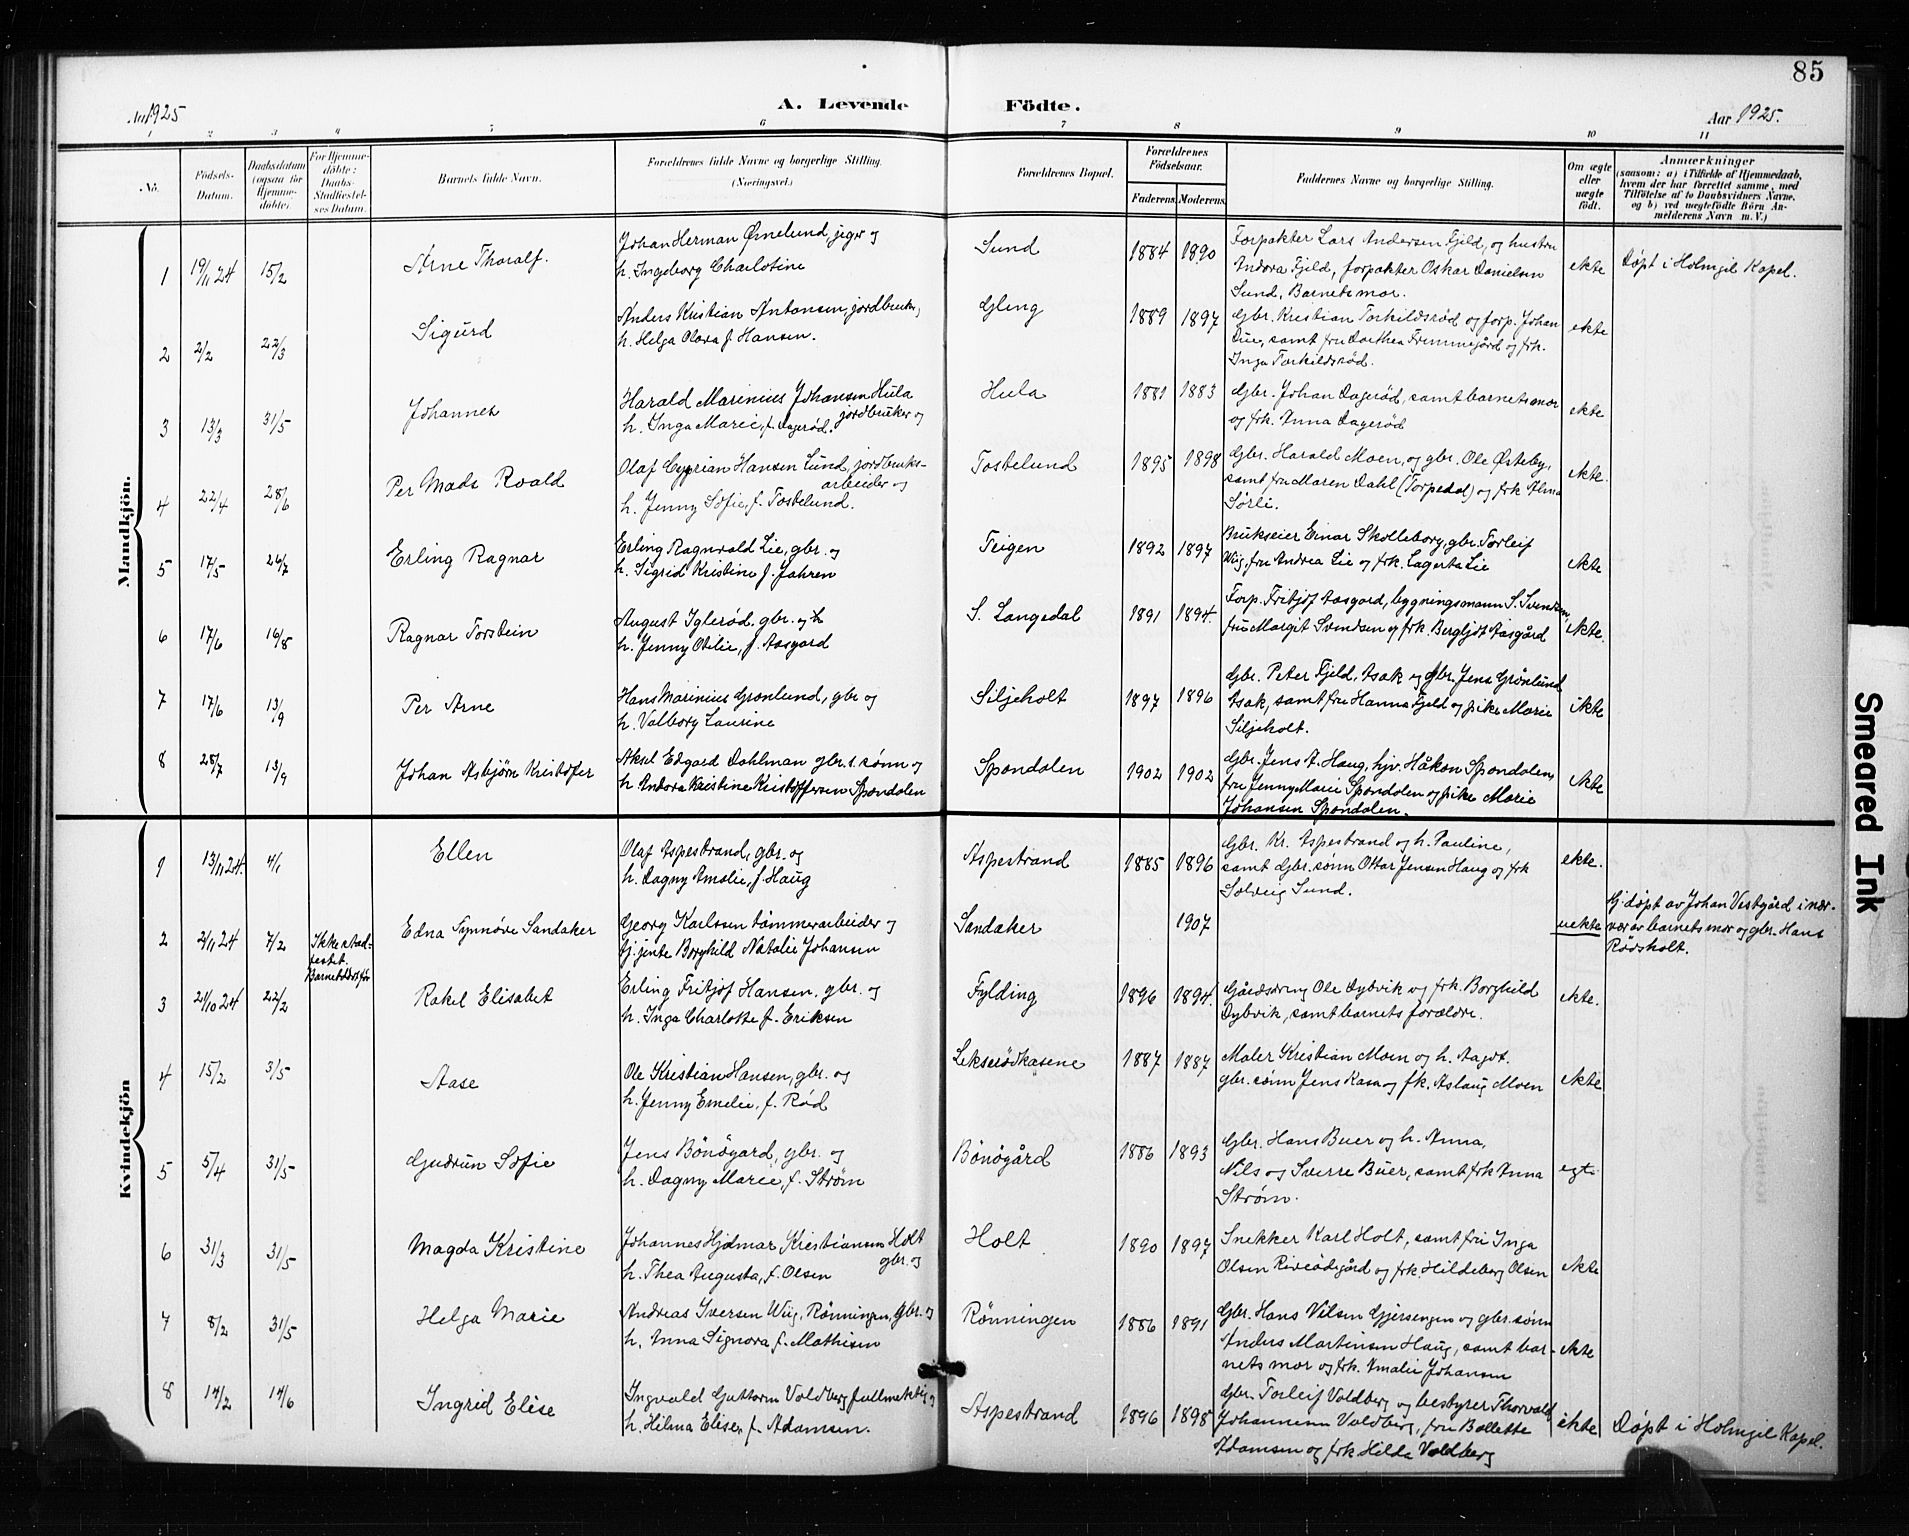 85
Aar 1925
A. Levende Födte.
Aar 1925.
1 2 3 4 5 6 7 8 9 10 11
No.
Födsels-Datum.
Daabsdatum (ogsaa for Hjemme-döbte).
For Hjemme-döbte: Daabs-Stadfæstel-ses Datum.
Barnets fulde Navn.
Forældrenes fulde Navne og borgerlige Stilling. (Næringsvei.)
Forældrenes Bopæl.
Forældrenes Födselsaar.
Faderens. Moderens.
Faddernes Navne og borgerlige Stilling.
Om ægte eller uægte födt.
Anmærkninger
(saasom: a) i Tilfælde af Hjemmedaab,
hvem der har forrettet samme, med
Tilföielse af to Daabsvidners Navne,
og b) ved uægtefödte Börn An-
melderens Navn m. V.)
Mandkjön.
1 19/11 24 15/2 Arne Thoralf. Johan Herman Ørnelund, jeger og
h. Ingeborg Charlotine Sund 1884 1890 Forpakter Lars Andersen Fjeld, og hustru
Andora Fjeld, forpakter Oskar Danielsen
Sund, Barnets mor. ekte Døpt i Holmgil Kapel.
2 2/2 22/3 Sigurd Anders Kristian Antonsen, jordbruker,
h. Helga Olava f. Hansen. Gleng 1889 1897 Gbr. Kristian Torkildsrød og forp. Johan
Due, samt fru Dorthea Fremmegård og frk.
Inga Torkildsrød. ekte
3 13/3 31/5 Johannes Harald Marinius Johansen Hula
jordbruker og
h. Inga Marie, f. Dagerød. Hula 1881 1883 Gbr. Johan Dagerød, samt barnets mor
og frk. Anna Dagerød ekte
4 22/4 28/6 Per Mads Roald Olaf Cyprian Hansen Lund, jordbruks-
arbeider og
h. Jenny Sofie, f. Tostelund. Tostelund 1895 1898 Gbr. Harald Moen, og gbr. Ole Østeby,
samt fru Maren Dahl (Torpedal) og frk Alma
Sørli. ekte.
5 17/5 26/7 Erling Ragnar Erling Ragnvald Lie, gbr. og
h. Sigrid Kristine f. Jahren Teigen 1892 1897 Brukseier Einar Skolleborg, gbr. Torleif
Wiig, fru Andrea Lie og frk. Lagerta Lie ekte
6 17/6 16/8 Ragnar Torstein August Iglerød. gbr. og h
h. Jenny Otilie, f. Aasgard S. Langedal 1891 1894. Forp. Fritjof Aasgard, bygningsmann S. Svendsen,
fru Margit Svendsen og frk. Bergljot Aasgård ekte.
7 17/6 13/9 Per Arne Hans Marinius Grønlund, gbr og
h. Valborg Laurine Siljeholt 1897 1896 Gbr. Peter Fjeld, Asak og Gbr. Jens Grønlund
Asak, samt fru Hanna Fjeld og pike Marie
Siljeholt. ekte
8 28/7 13/9 Johan Asbjørn Kristofer Aksel Edgard Dahlman gbr. s. sønn og
h Andora Kristine Kristoffersen Spondalen Spondalen 1902 1902 Gbr. Jens A. Haug, hjv. Håkon Spondalen,
fru Jenny Marie Spondalen og pike Marie
Johansen Spondalen. ekte
Kvindekjön
1 13/11 24. 4/1 Ellen Olaf Aspestrand, gbr. og
h. Dagny Amalie, f. Haug Aspestrand 1885 1896 Gbr. Kr. Aspestrand og h. Pauline,
samt Gbr. sønn Ottar Jensen Haug og frk
Solveig Sund. ekte.
2 2/11 24 7/2 Ikke stad-
festet.
Barnet død før Edna Synnøve Sandaker Georg Karlsen tømmerarbeider og
tj. jente Borghild Natalie Johansen Sandaker 1907 uekte Hj. døpt av Johan Vestgård i nær-
vær av barnets mor og gbr. Hans
Rødsholt.
3 21/10 24 22/2 Rakel Elisabet Erling Fritjof Hansen, gbr. og
h. Inga Charlotte f. Eriksen Fylding 1896 1894. Gårdsdreng Ole Dybvik og frk. Borghild
Dybvik, samt barnets forældre. ekte.
4 15/2 3/5 Aase Ole Kristian Hansen, gbr. og
h. Jenny Emelie, f. Rød Lekserødkasene 1887 1887 Maler Kristian Moen og h. Aagot.
gbr. sønn Jens Kasa og fk. Aslaug Moen ekte
5 5/4 31/5 Gudrun Sofie Jens Bönögard, gbr. og
h. Dagny Marie, f. Strøm Bönögård 1886 1893 Gbr. Hans Buer og h. Anna,
Nils og Sverre Buer, samt frk Anna
Strøm. egte
6 31/3 31/5 Magda Kristine Johannes Hjalmar Kristiansen Holt
gbr. og
h. Thea Augusta, f. Olsen Holt 1890 1897 Snekker Karl Holt, samt fru Inga
Olsen Rivesødgård og frk. Hildeborg Olsen ekte
7 8/2 31/5 Helga Marie Andreas Iversen Wiig, Rønningen, gbr. og
h. Anna Signora f. Mathisen Rønningen 1886 1891 Gbr. Hans Nilsen Gjersengen og gbr. sønn
Anders Martinsen Haug, samt bar-
nets mor og frk. Amalie Johansen ekte
8 14/2 14/6 Ingrid Elise Ingvald Guttorm Voldberg fullmektig og
h. Hilma Elise, f. Adamsen. Aspestrand 1896 1898 Gbr. Torleif Voldberg og bestyrer Thorvald
Johannesen Voldberg, fru Bollette
Adamsen og frk Hilda Voldberg ekte Døpt i Holmgil Kapel.
Smeared Ink